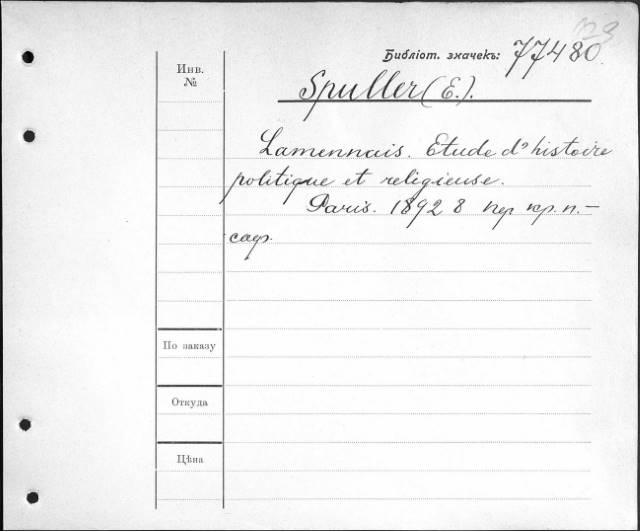 Библіот. значекъ: 77480.
Инв.
№
Spuller (E.).
Lamennais. Etude d'histoire
politique et religieuse.
Paris. 1892 8 пер кр. п.-
саф.
По заказу
Откуда
Цѣна